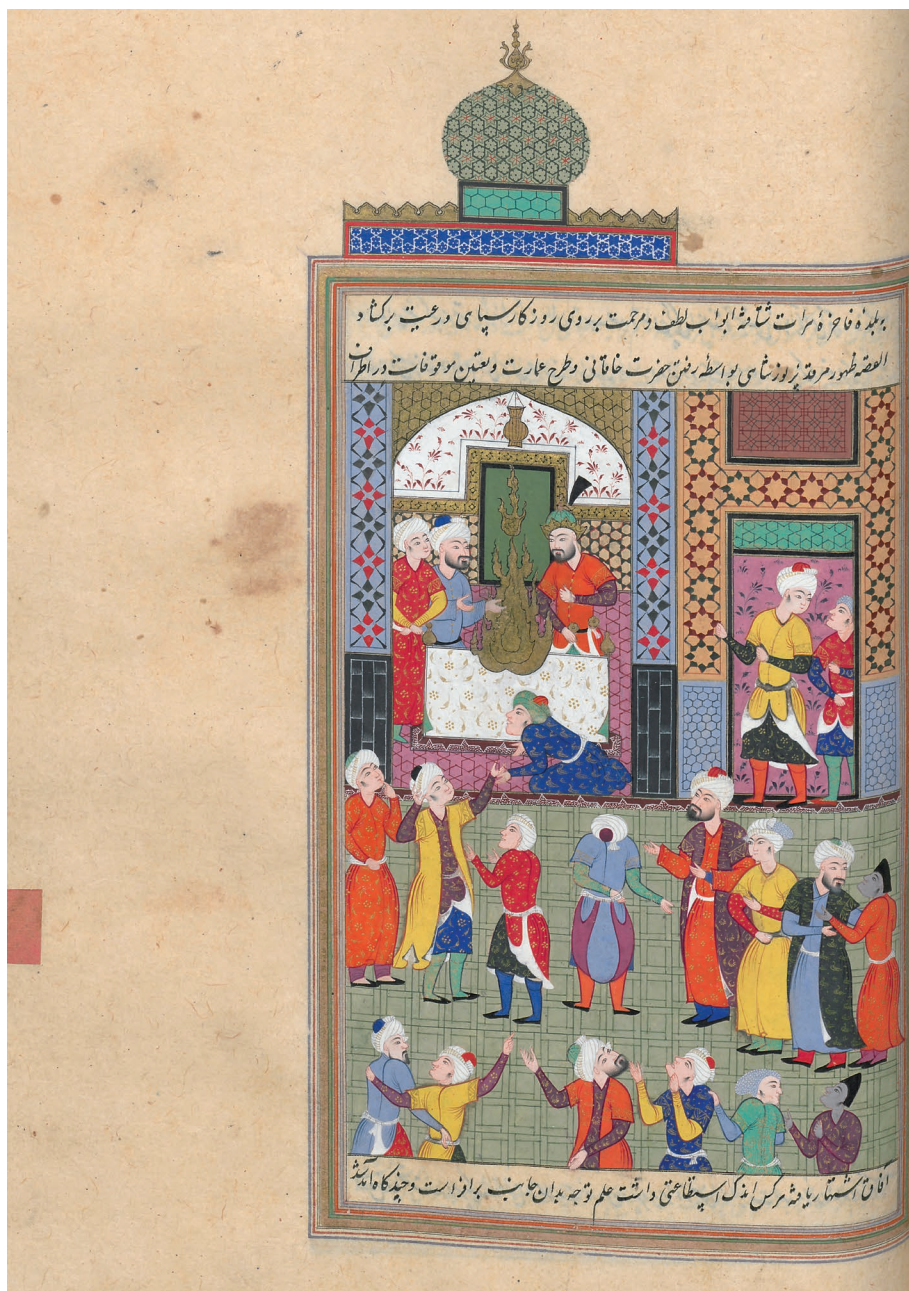 ببلدهٔ فاخرهٔ هرات شتافته ابواب لطف و مرحمت بر روی روزکار سپاهی و رعیت برکشاد
القصه ظهور مرقد بواسطهٔ رفتن حضرت خاقانی و طرح عمارت و تعیین موقوفات در اطراف
آفاق اشتهار یافته هرکس اندک استطاعتی داشت علم توجه بدان جانب برافراشت و چندکاه آمد شد